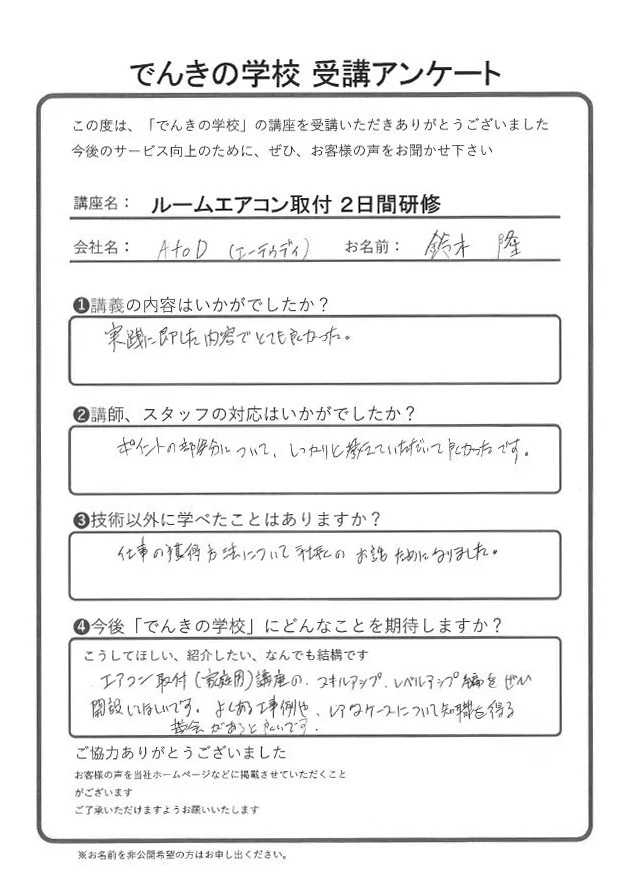 でんきの学校 受講アンケート
この度は、「でんきの学校」の講座を受講いただきありがとうございました
今後のサービス向上のために、ぜひ、お客様の声をお聞かせ下さい
講座名： ルームエアコン取付 2日間研修
会社名： AtoD （エーテゥディ） お名前： 鈴木 隆
❶講義の内容はいかがでしたか？
実践に即した内容でとても良かった。
❷講師、スタッフの対応はいかがでしたか？
ポイントの部分について、しっかりと教えていただいて良かったです。
❸技術以外に学べたことはありますか？
仕事の獲得方法について社長のお話ためになりました。
❹今後「でんきの学校」にどんなことを期待しますか？
こうしてほしい、紹介したい、なんでも結構です
エアコン取付（家庭用）講座の、スキルアップ、レベルアップ編をぜひ
開設してほしいです。よくある工事例や、レアなケースについて知識を得る
機会があると良いです．
ご協力ありがとうございました
お客様の声を当社ホームページなどに掲載させていただくこと
がございます
ご了承いただけますようお願いいたします
※お名前を非公開希望の方はお申し出ください。